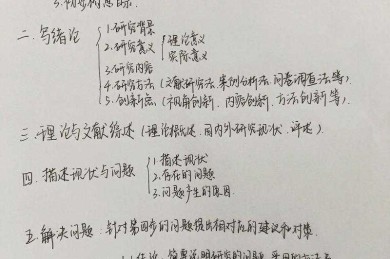 二、写绪论
1.研究背景
2.研究意义
理论意义
实际意义
3.研究内容
4.研究方法（文献研究法、案例分析法、问卷调查法等）
5.创新点（视角创新、内容创新、方法创新等）
三、理论与文献综述（理论概述、国内外研究现状、评述）
四、描述现状与问题
1.描述现状
2.存在的问题
3.问题产生的原因
五、解决问题：针对第四步的问题提出相对应的建议和对策.